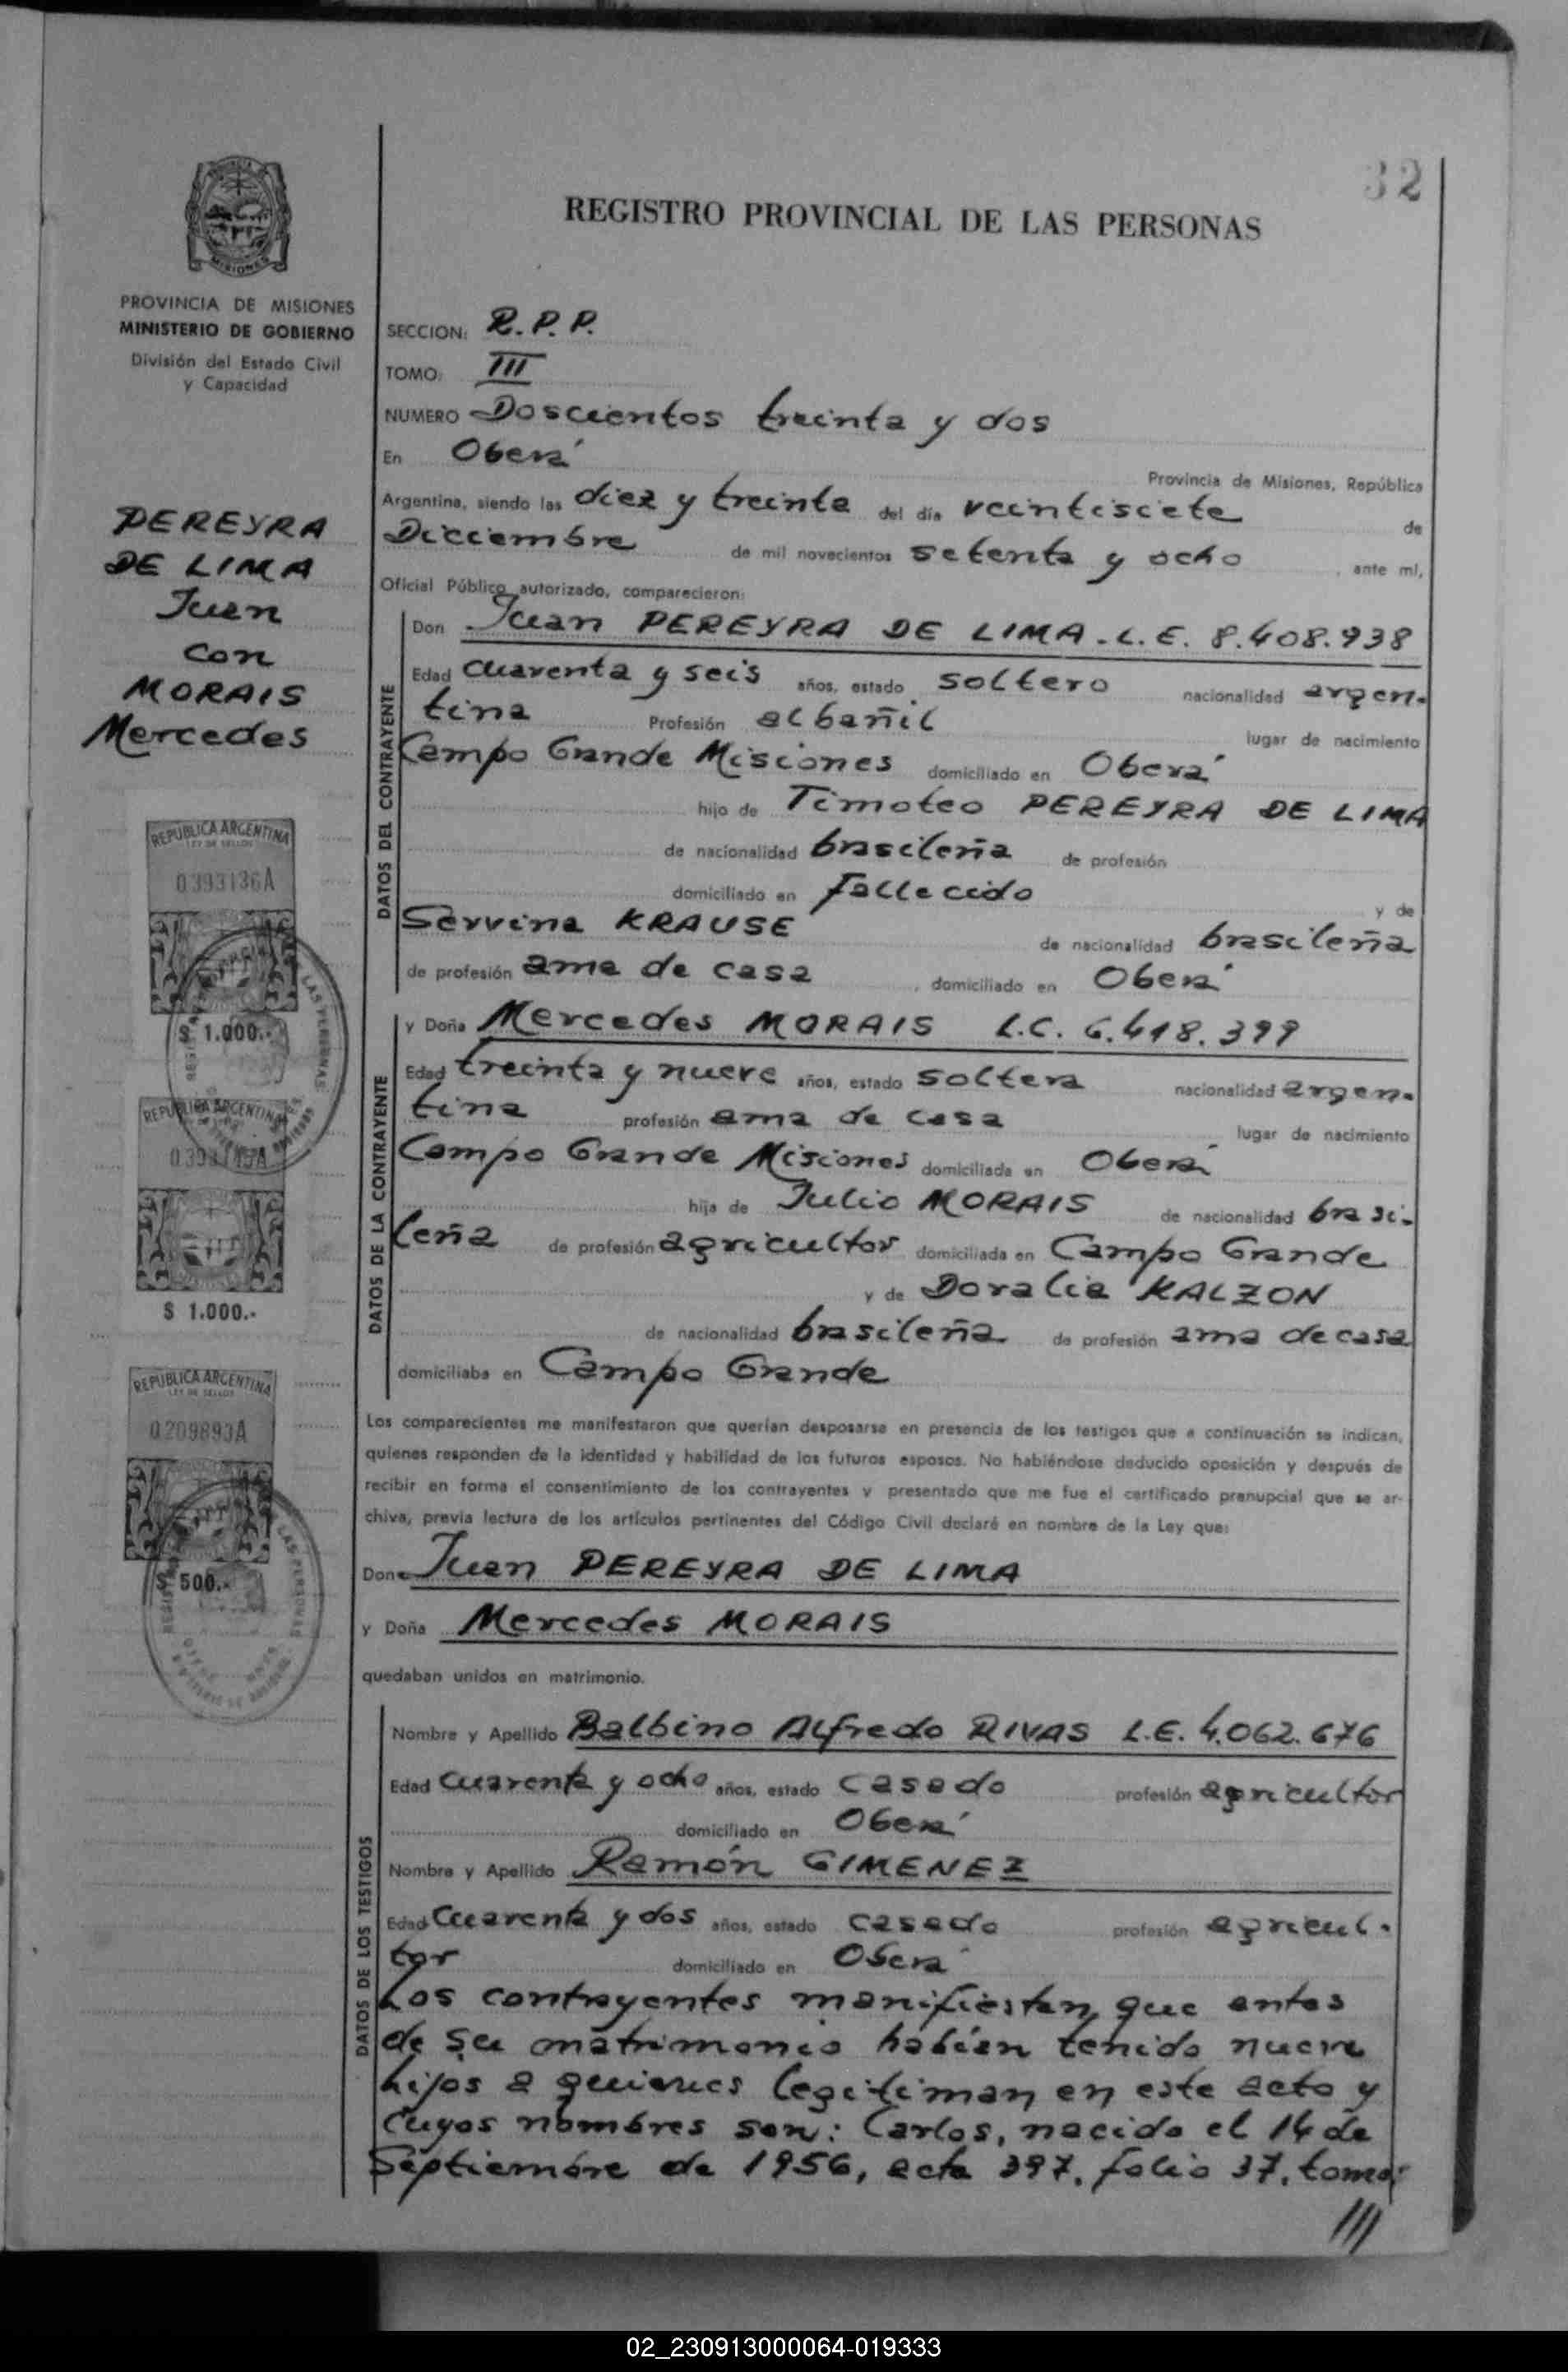 32
REGISTRO PROVINCIAL DE LAS PERSONAS
PROVINCIA DE MISIONES
MINISTERIO DE GOBIERNO
División del Estado Civil
y Capacidad
PEREYRA
DE LIMA
Juan
con
MORAIS
Mercedes
REPUBLICA ARGENTINA
LEY DE SELLOS
0393136A
$ 1.000.-
REPUBLICA ARGENTINA
$ 1.000.-
REPUBLICA ARGENTINA
LEY DE SELLOS
0209893A
$ 500.-
SECCION: R.P.P.
TOMO: III
NUMERO Doscientos treinta y dos
En Oberá
Provincia de Misiones, República
Argentina, siendo las diez y treinta del día veintisiete de
Diciembre de mil novecientos setenta y ocho, ante mí,
Oficial Público autorizado, comparecieron:
DATOS DEL CONTRAYENTE
Don Juan PEREYRA DE LIMA - L.E. 8.408.938
Edad cuarenta y seis años, estado soltero nacionalidad argen-
tina Profesión albañil lugar de nacimiento
Campo Grande Misiones domiciliado en Oberá
hijo de Timoteo PEREYRA DE LIMA
de nacionalidad brasileña de profesión
domiciliado en fallecido y de
Servina KRAUSE de nacionalidad brasileña
de profesión ama de casa, domiciliado en Oberá
DATOS DE LA CONTRAYENTE
y Doña Mercedes MORAIS L.C. 6.418.399
Edad treinta y nueve años, estado soltera nacionalidad argen-
tina profesión ama de casa lugar de nacimiento
Campo Grande Misiones domiciliada en Oberá
hija de Julio MORAIS de nacionalidad brasi-
leña de profesión agricultor domiciliada en Campo Grande
y de Doralia KALZON
de nacionalidad brasileña de profesión ama de casa
domiciliaba en Campo Grande
Los comparecientes me manifestaron que querían desposarse en presencia de los testigos que a continuación se indican,
quienes responden de la identidad y habilidad de los futuros esposos. No habiéndose deducido oposición y después de
recibir en forma el consentimiento de los contrayentes y presentado que me fue el certificado prenupcial que se ar-
chiva, previa lectura de los artículos pertinentes del Código Civil declaré en nombre de la Ley que:
Don Juan PEREYRA DE LIMA
y Doña Mercedes MORAIS
quedaban unidos en matrimonio.
DATOS DE LOS TESTIGOS
Nombre y Apellido Balbino Alfredo RIVAS L.E. 4.062.676
Edad cuarenta y ocho años, estado casado profesión agricultor
domiciliado en Oberá
Nombre y Apellido Ramón GIMENEZ
Edad cuarenta y dos años, estado casado profesión agricul-
tor domiciliado en Oberá
Los contrayentes manifiestan que antes
de su matrimonio habían tenido nueve
hijos a quienes legitiman en este acto y
cuyos nombres son: Carlos, nacido el 14 de
Septiembre de 1956, acta 397, folio 37, tomo:
///
02_230913000064-019333